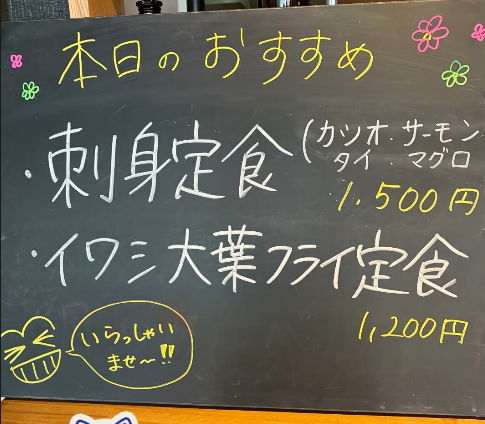 本日のおすすめ
・刺身定食(カツオ・サーモン
タイ・マグロ
1,500円
・イワシ大葉フライ定食
1,200円
いらっしゃい
ませ〜!!